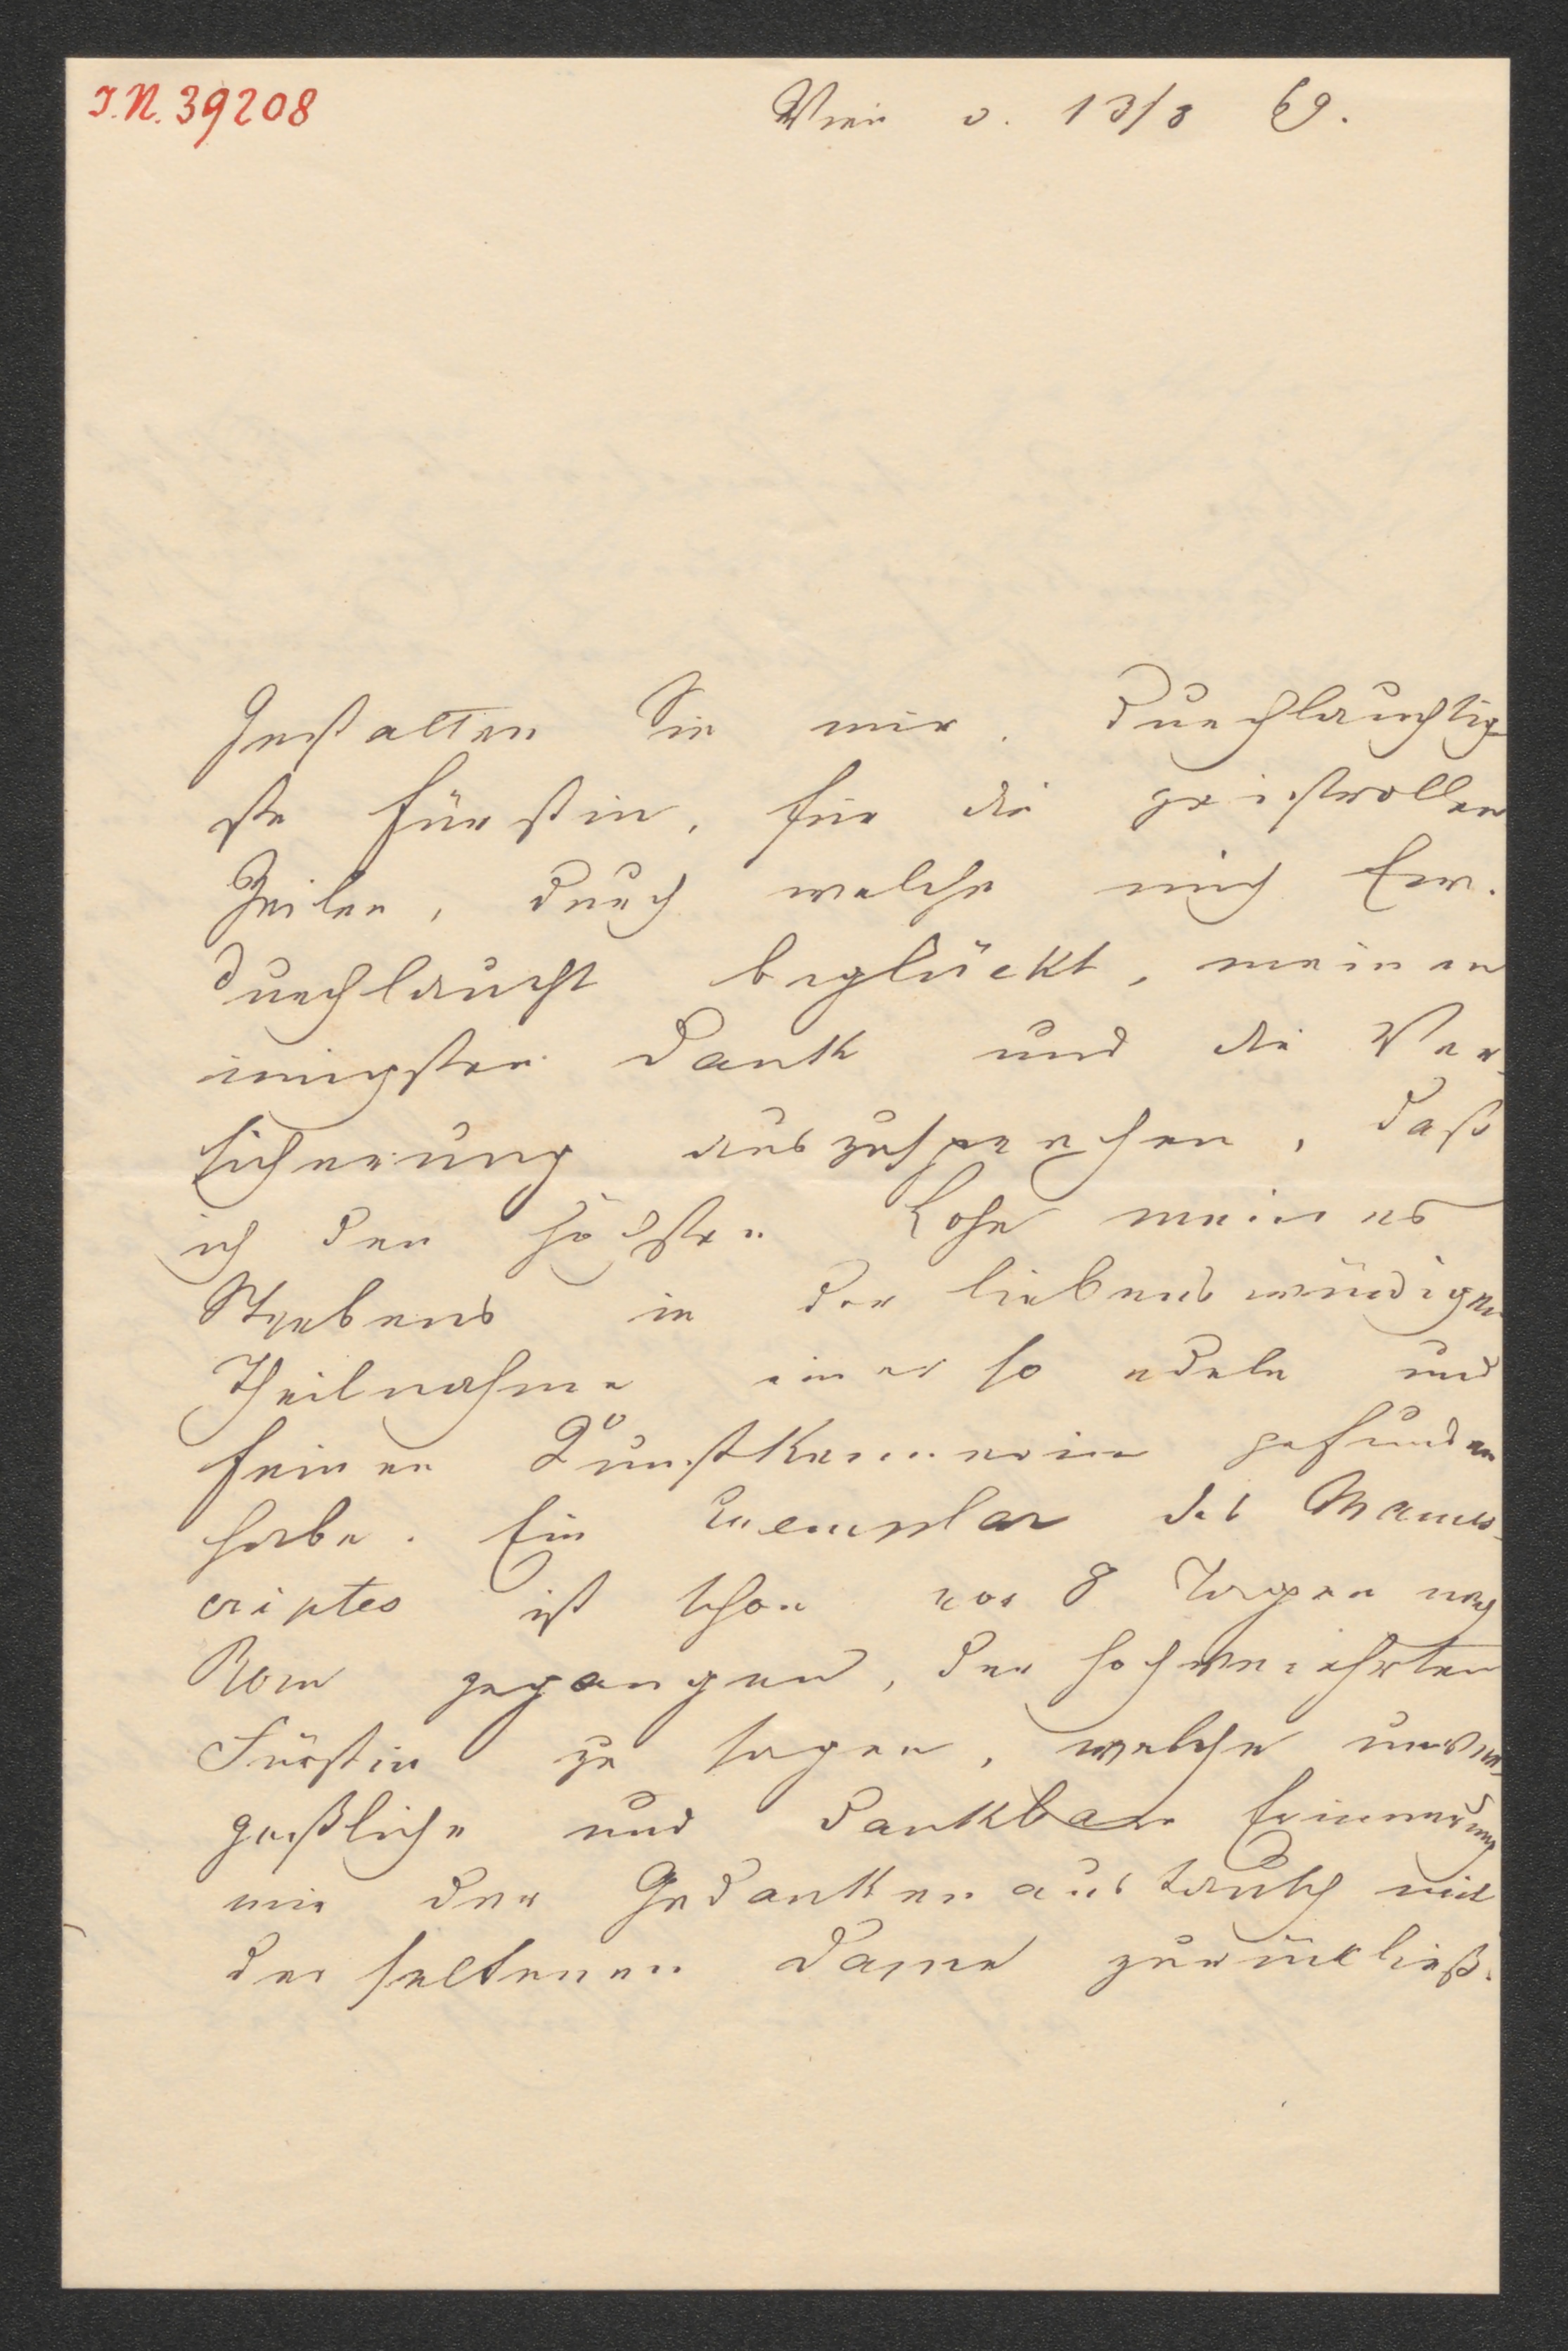 I.N. 39208
Wien d. 13/3 69.
Gestatten Sie mir, Durchlauchtig-
ste Fürstin, für die geistvollen
Zeilen, durch welche mich Eur.
Durchlaucht beglückt, meinen
innigsten Dank und die Ver-
sicherung auszusprechen, daß
ich den höchsten Lohn meines
Strebens in der liebenswürdigen
Theilnahme einer so edeln und
feinen Kunstkennerin gefunden
habe. Ein Exemplar des Manus-
criptes ist schon vor 8 Tagen nach
Rom gegangen, der hochverehrten
Fürstin zu sagen, welche unver-
geßliche und dankbare Erinnerung
mir der Gedankenaustausch mit
der seltenen Dame zurückließ.